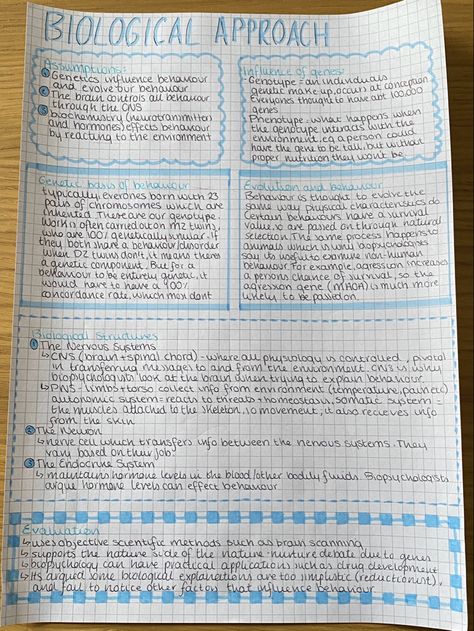 BIOLOGICAL APPROACH
Assumptions:
① Genetics influence behaviour
and evolve our behaviour
② The brain controls all behaviour
through the CNS
③ biochemistry (neurotransmitters
and hormones) effects behaviour
by reacting to the environment
Influence of genes:
Genotype = an individuals
genetic make up, occurs at conception
Everyones thought to have abt 100,000
genes
Phenotype = what happens when
the genotype interacts with the
environment, e.g a person could
have the gene to be tall, but without
proper nutrition they won't be
Genetic basis of behaviour
Typically, everones born with 23
pairs of chromosomes which are
inherited. These are our genotype.
Work is often carried out on MZ twins,
who are 100% genetically similar. If
they both share a behaviour/disorder
when DZ twins don't, it means theres
a genetic component. But for a
behaviour to be entirely genetic, it
would have to have a 100%
concordance rate, which most dont
Evolution and behaviour
Behaviour is thought to evolve the
same way physical characteristics do
Certain behaviours have a survival
value, so are passed on through natural
selection. The same process happens to
animals which is why biopsychologists
say its useful to examine non-human
behaviour. For example, agression increases
a persons chance of survival, so the
agression gene (MAOA) is much more
likely to be passed on.
Biological Structures
① The Nervous Systems
↳ CNS (brain + spinal chord) - where all physiology is controlled, pivotal
in transferring messages to and from the environment. CNS is why
biopsychologists look at the brain when trying to explain behaviour
↳ PNS - limbs + torso collect info from environment (temperature, pain etc)
Autonomic system = reacts to threats + homeostasis, somatic system =
the muscles attached to the skeleton, ie movement, it also recieves info
from the skin
② The Neuron
↳ nerve cell which transfers info between the nervous systems. They
vary based on their job
③ The Endocrine System
↳ maintains hormone levels in the blood/other bodily fluids. Biopsychologists
argue hormone levels can effect behaviour
Evaluation
↳ uses objective scientific methods such as brain scanning
↳ supports the nature side of the nature-nurture debate due to genes
↳ biopsychology can have practical applications such as drug development
↳ Its argued some biological explanations are too simplistic (reductionist),
and fail to notice other factors that influence behaviour